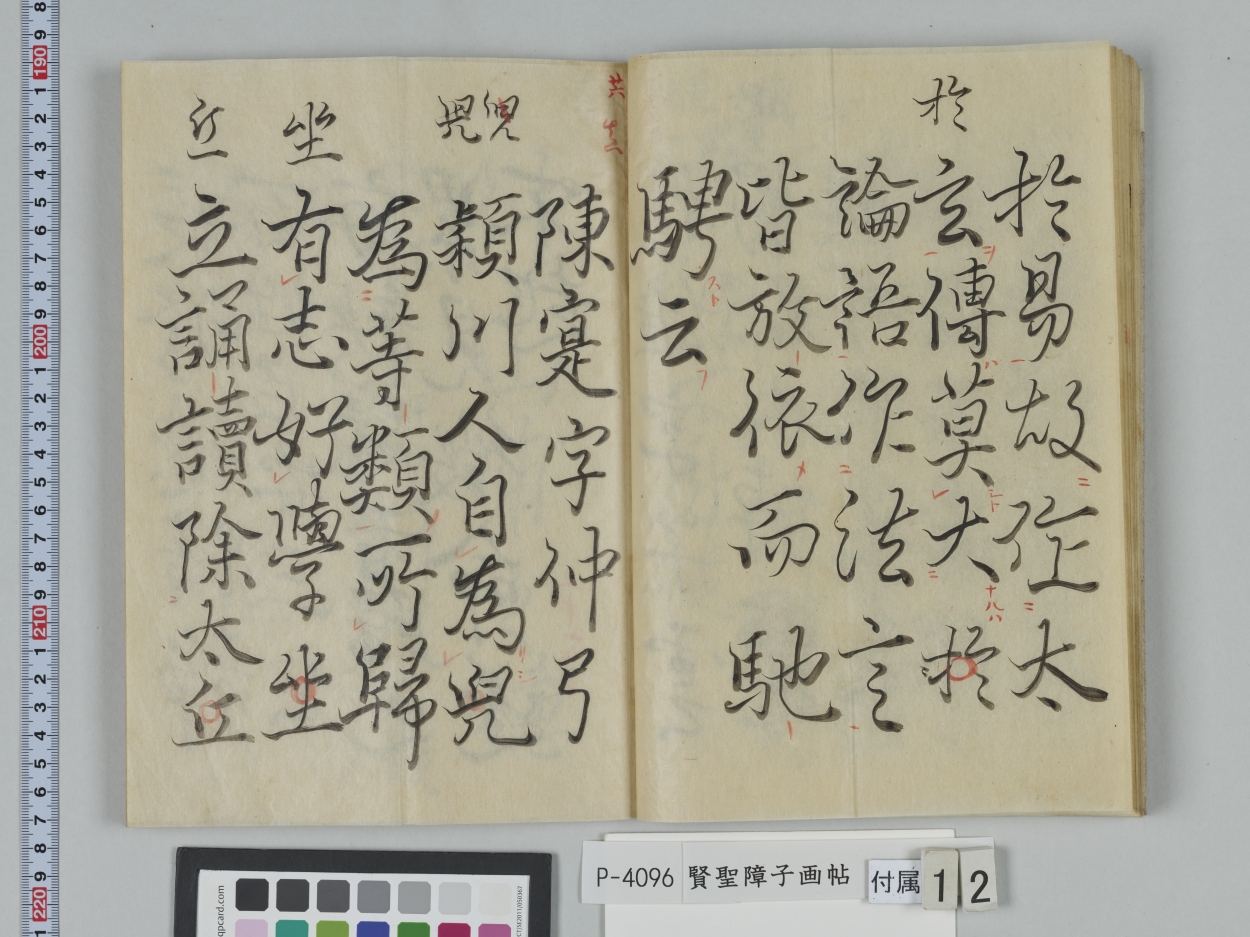 於
於易故作太
玄傳莫大於
論語作法言
皆放依而馳
騁云
陳寔字仲弓
兒兒
潁川人自為兒
為等類所歸
坐
有志好學坐
丘
立誦讀除太丘
P-4096 賢聖障子画帖 付属 12
190
200
210
220
qpcard.com